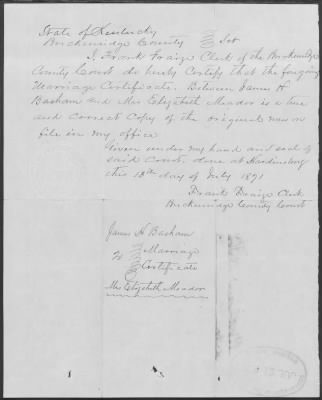 State of Kentucky
Breckenridge County } Sct
I, Frank Fraize Clerk of the Breckenridge
County Court do hereby Certify that the forgoing
Marriage Certificate. Between James H
Basham and Mrs Elizabeth Meador is a true
and Correct Copy of the original now on
file in my office
Given under my hand and seal of
said Court. done at Hardinsburg
this 13th day of July 1891
Frank Fraize Clerk
Breckenridge County Court
James H Basham
To } Marriage
Certificate
Mrs Elizabeth Meador